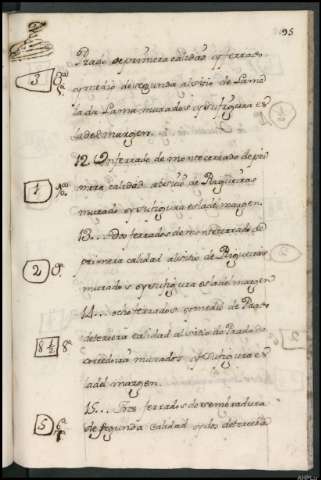 95
Prado de primera calidad y ferrado
y medio de segunda al sitio de Lama
la da Lama murados y su figura es
la del margen.
3
12. Un ferrado de monte cerrado de pri
mera calidad al sitio de Regueiras
murado y su figura es la del margen.
1
13... Dos ferrados de monte cerrado de
primera calidad al sitio de Regueiras
murados y su figura es la del margen
2
14... ocho ferrados y medio de Pasto
de tercera calidad al sitio de Prado da
murados y su figura es
la del margen.
8 1/2
15... Tres ferrados de sembradura
de segunda calidad y dos de tercera
5